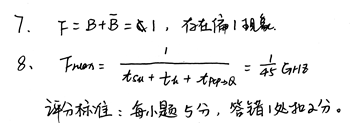 7. F = B + B̄ = 1，存在偏1现象.
8. Fmax = 1 / (tsu + th + tPCP→Q) = 1/45 GHz
评分标准：每小题5分，答错1处扣2分。